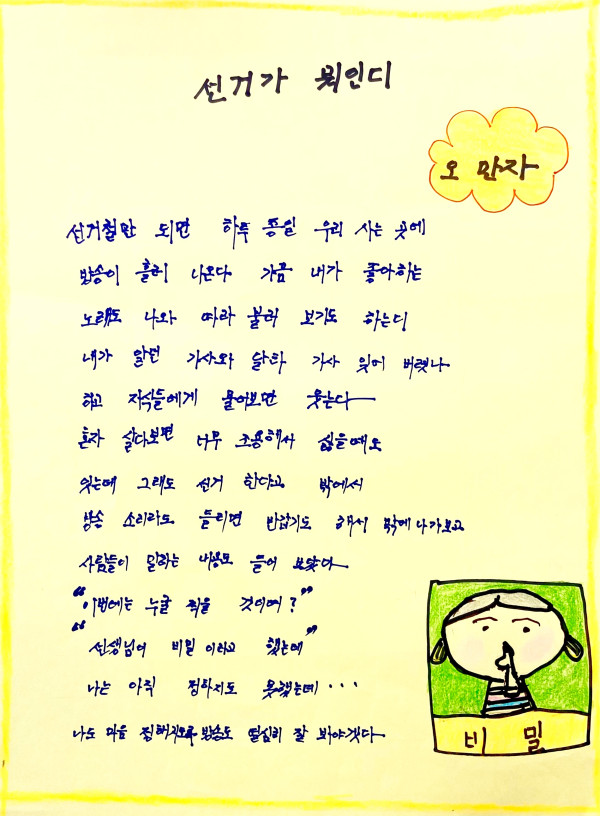 선거가 뭐인디
오 만자
선거철만 되면 하루 종일 우리 사는 곳에
방송이 흘러 나온다 가끔 내가 좋아하는
노래도 나와 따라 불러 보기도 하는디
내가 알던 가사와 달라 가사 잊어 버렸나
하고 자식들에게 물어보면 웃는다
혼자 살다보면 너무 조용해서 싫을때도
잇는데 그래도 선거 한다고 밖에서
방송 소리라도 들리면 반갑기도 해서 밖에 나가보고
사람들이 말하는 내용도 들어 보았다
"이번에는 누굴 찍을 것이여?"
"선생님이 비밀 이라고 했는데"
나는 아직 정하지도 못했는데 ...
나도 마음 정해지도록 방송도 열심히 잘 봐야겠다
비 밀